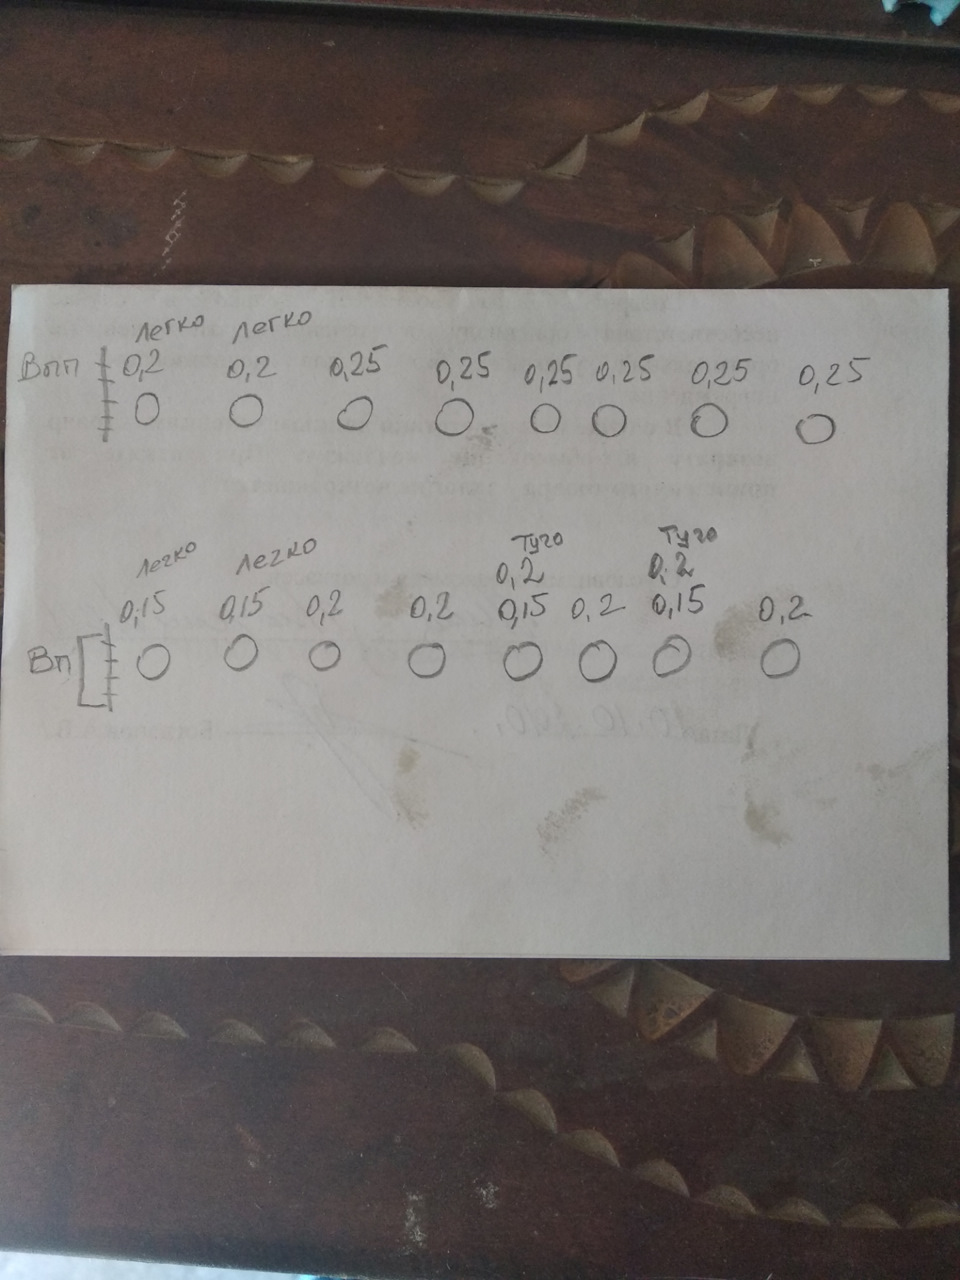 легко легко
Вып 0,2 0,2 0,25 0,25 0,25 0,25 0,25 0,25
легко легко туго туго
0,2 0,2
0,15 0,15 0,2 0,2 0,15 0,2 0,15 0,2
Вп